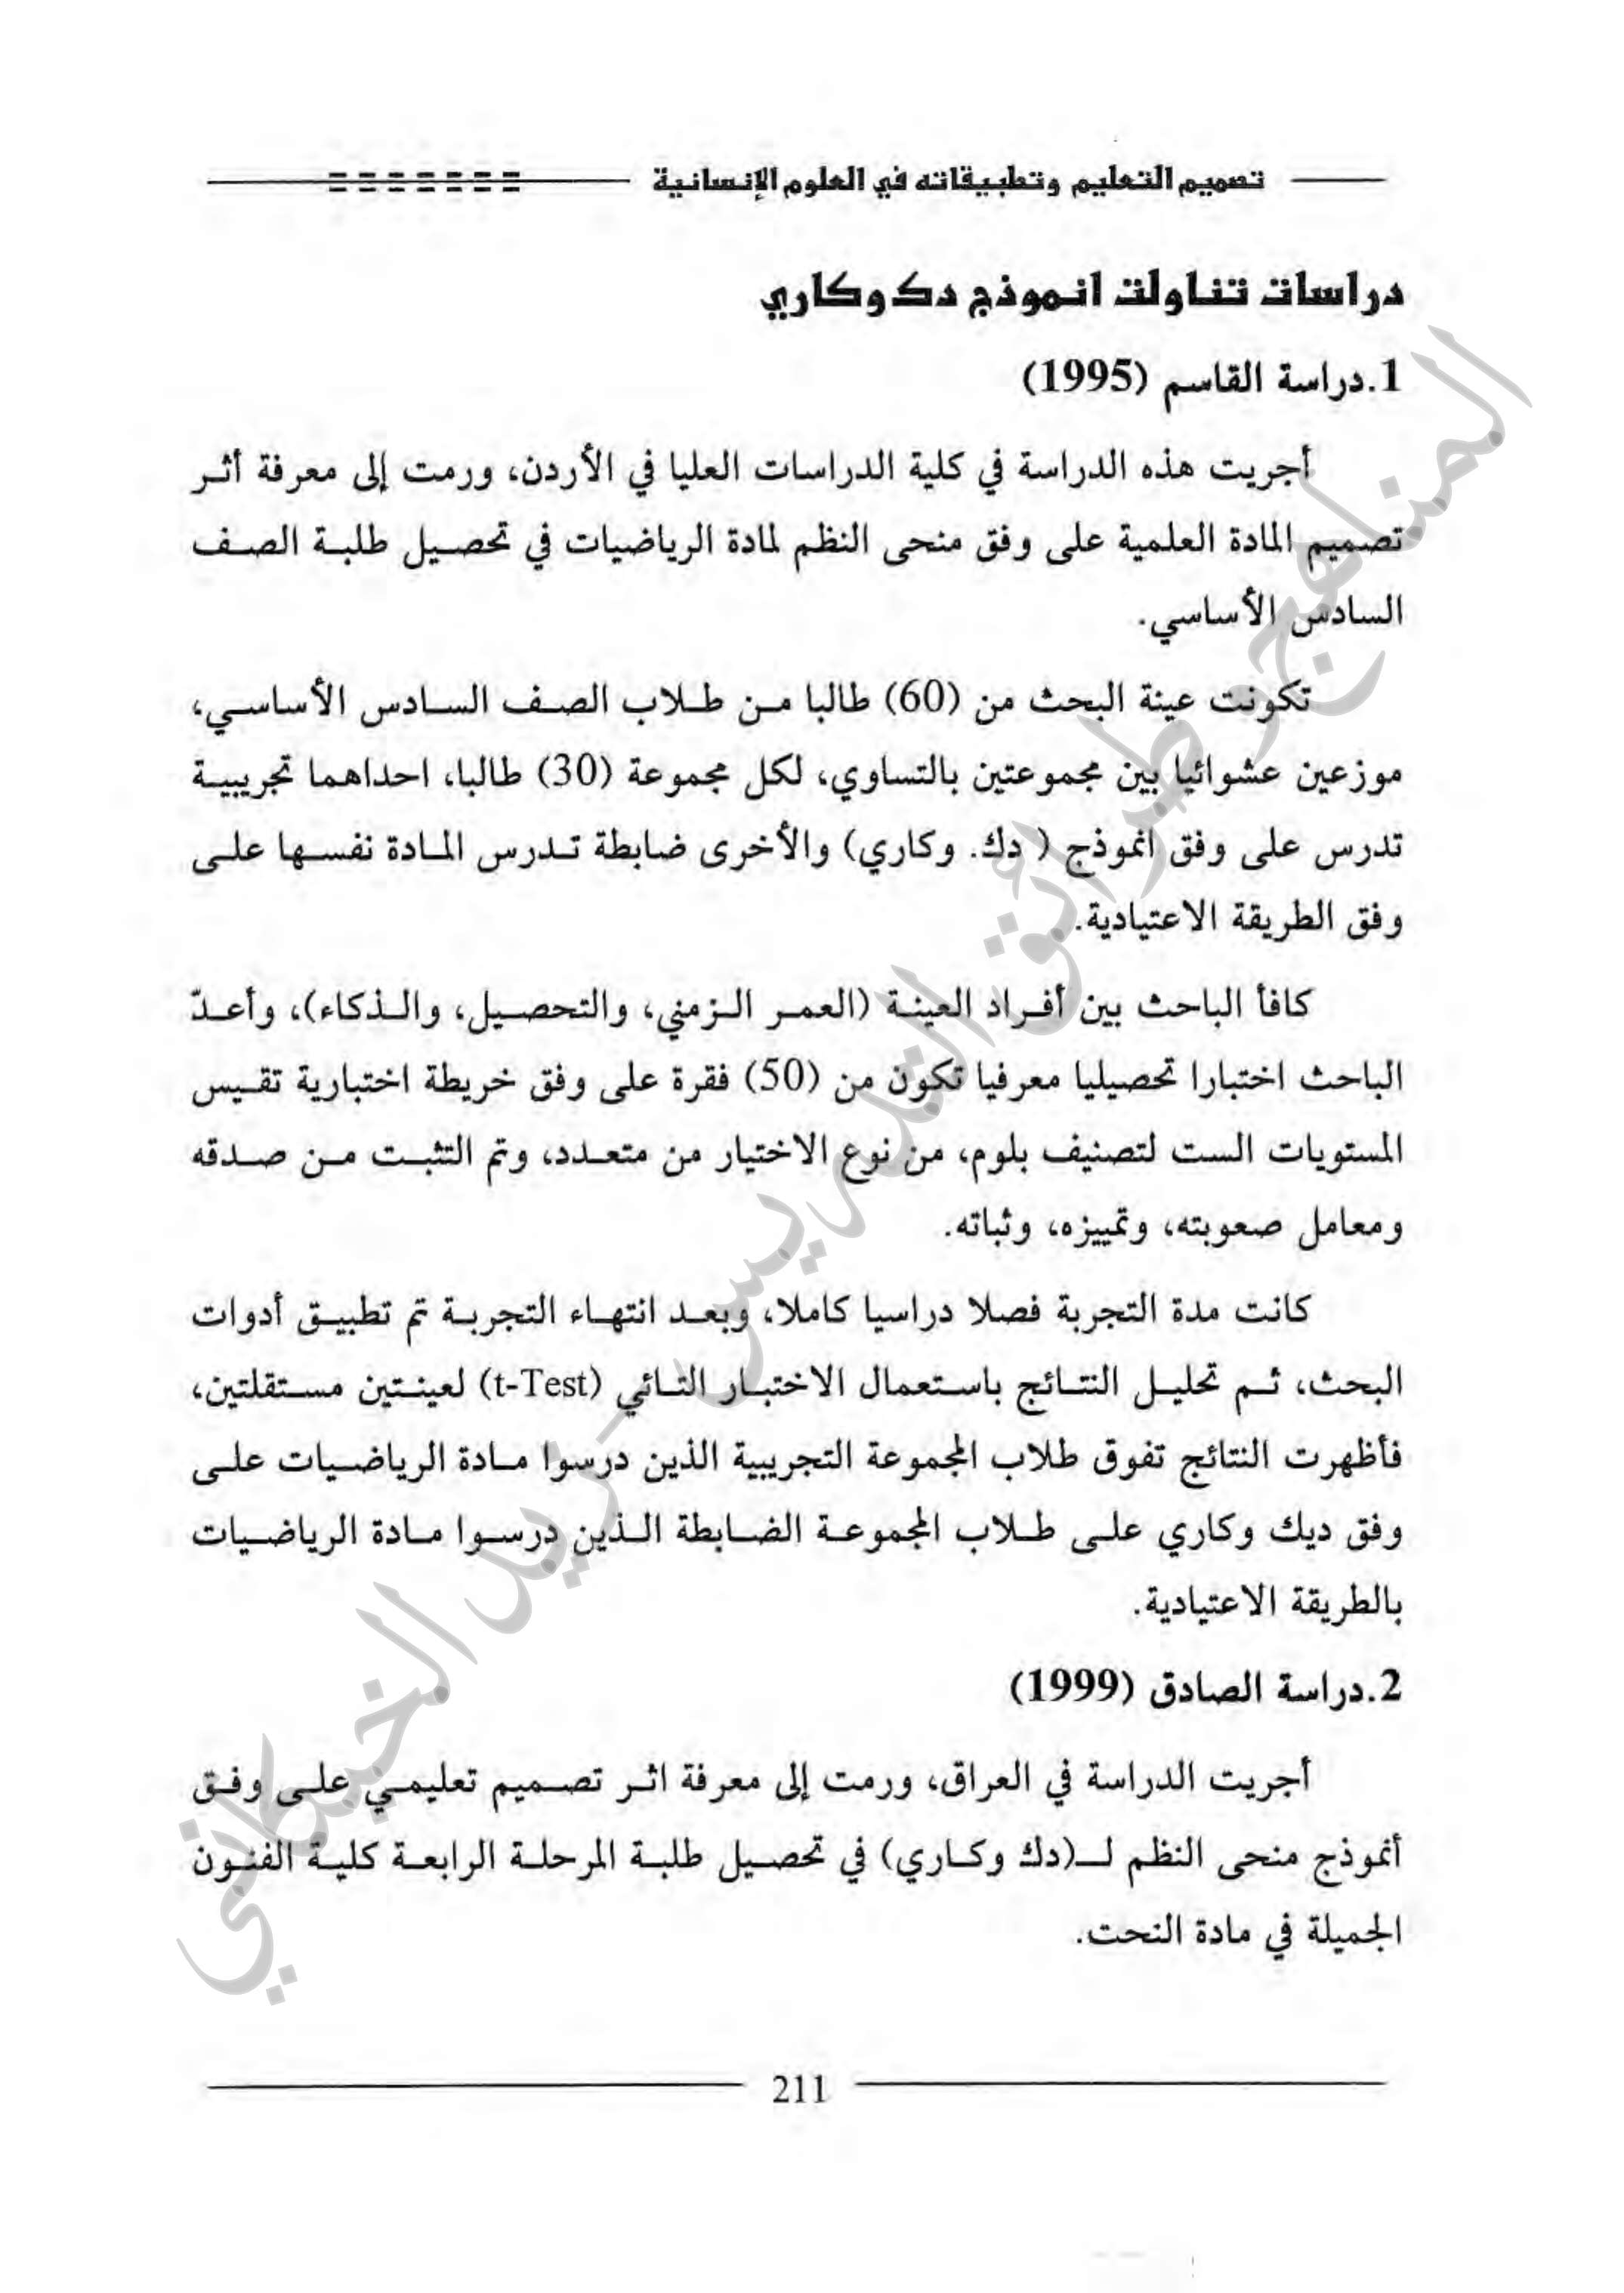 تصميم التعليم وتطبيقاته في العلوم الإنسانية
دراسات تناولت انموذج دك وكاري
1.دراسة القاسم (1995)
أجريت هذه الدراسة في كلية الدراسات العليا في الأردن، ورمت إلى معرفة أثر
تصميم المادة العلمية على وفق منحى النظم لمادة الرياضيات في تحصيل طلبة الصف
السادس الأساسي.
تكونت عينة البحث من (60) طالبا من طلاب الصف السادس الأساسي،
موزعين عشوائيا بين مجموعتين بالتساوي، لكل مجموعة (30) طالبا، احداهما تجريبية
تدرس على وفق انموذج ( دك. وكاري) والأخرى ضابطة تدرس المادة نفسها على
وفق الطريقة الاعتيادية.
كافأ الباحث بين أفراد العينة (العمر الزمني، والتحصيل، والذكاء)، وأعدّ
الباحث اختبارا تحصيليا معرفيا تكون من (50) فقرة على وفق خريطة اختبارية تقيس
المستويات الست لتصنيف بلوم، من نوع الاختيار من متعدد، وتم التثبت من صدقه
ومعامل صعوبته، وتمييزه، وثباته.
كانت مدة التجربة فصلا دراسيا كاملا، وبعد انتهاء التجربة تم تطبيق أدوات
البحث، ثم تحليل النتائج باستعمال الاختبار التائي (t-Test) لعينتين مستقلتين،
فأظهرت النتائج تفوق طلاب المجموعة التجريبية الذين درسوا مادة الرياضيات على
وفق ديك وكاري على طلاب المجموعة الضابطة الذين درسوا مادة الرياضيات
بالطريقة الاعتيادية.
2.دراسة الصادق (1999)
أجريت الدراسة في العراق، ورمت إلى معرفة اثر تصميم تعليمي على وفق
أنموذج منحى النظم لـ(دك وكاري) في تحصيل طلبة المرحلة الرابعة كلية الفنون
الجميلة في مادة النحت.
211
المناهج وطرائق التدريس - ريد الخيكاني